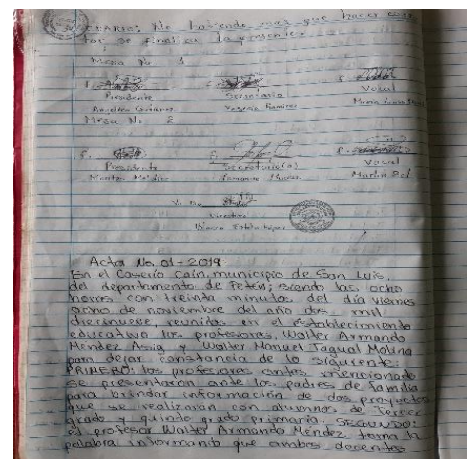 No habiendo mas que hacer cons
tar, se finaliza la presente.
Mesa No 1
Presidente Secretario Vocal
Yesenia Ramirez
Mesa No. 2
Presidente Secretario(a) Vocal
Vo. Bo.
Directora
Acta No. 01-2019
En el Caserío Caín, municipio de San Luis,
del departamento de Petén; siendo las ocho
horas con treinta minutos del día viernes
de noviembre del año dos mil
diecinueve, reunidos en el establecimiento
educativo los profesores, Walter Armando
Méndez Assig y Walter Manuel Jagual Molina
para dejar constancia de lo siguiente:
PRIMERO: los profesores antes mencionado
se presentaron ante los padres de familia
para brindar información de dos proyectos
que se realizarán con alumnos de Tercer
grado y quinto grado primaria. SEGUNDO:
el profesor Walter Armando Méndez toma la
palabra informando que ambos docentes